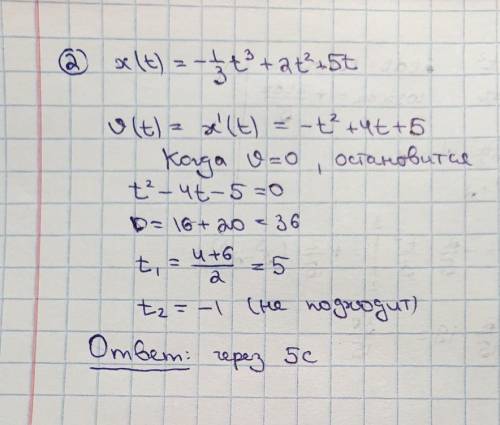 ② x(t) = -1/3 t³ + 2t² + 5t
υ(t) = x'(t) = -t² + 4t + 5
Когда υ=0, остановится
t² - 4t - 5 = 0
D = 16 + 20 = 36
t₁ = (4+6)/2 = 5
t₂ = -1 (не подходит)
Ответ: через 5с